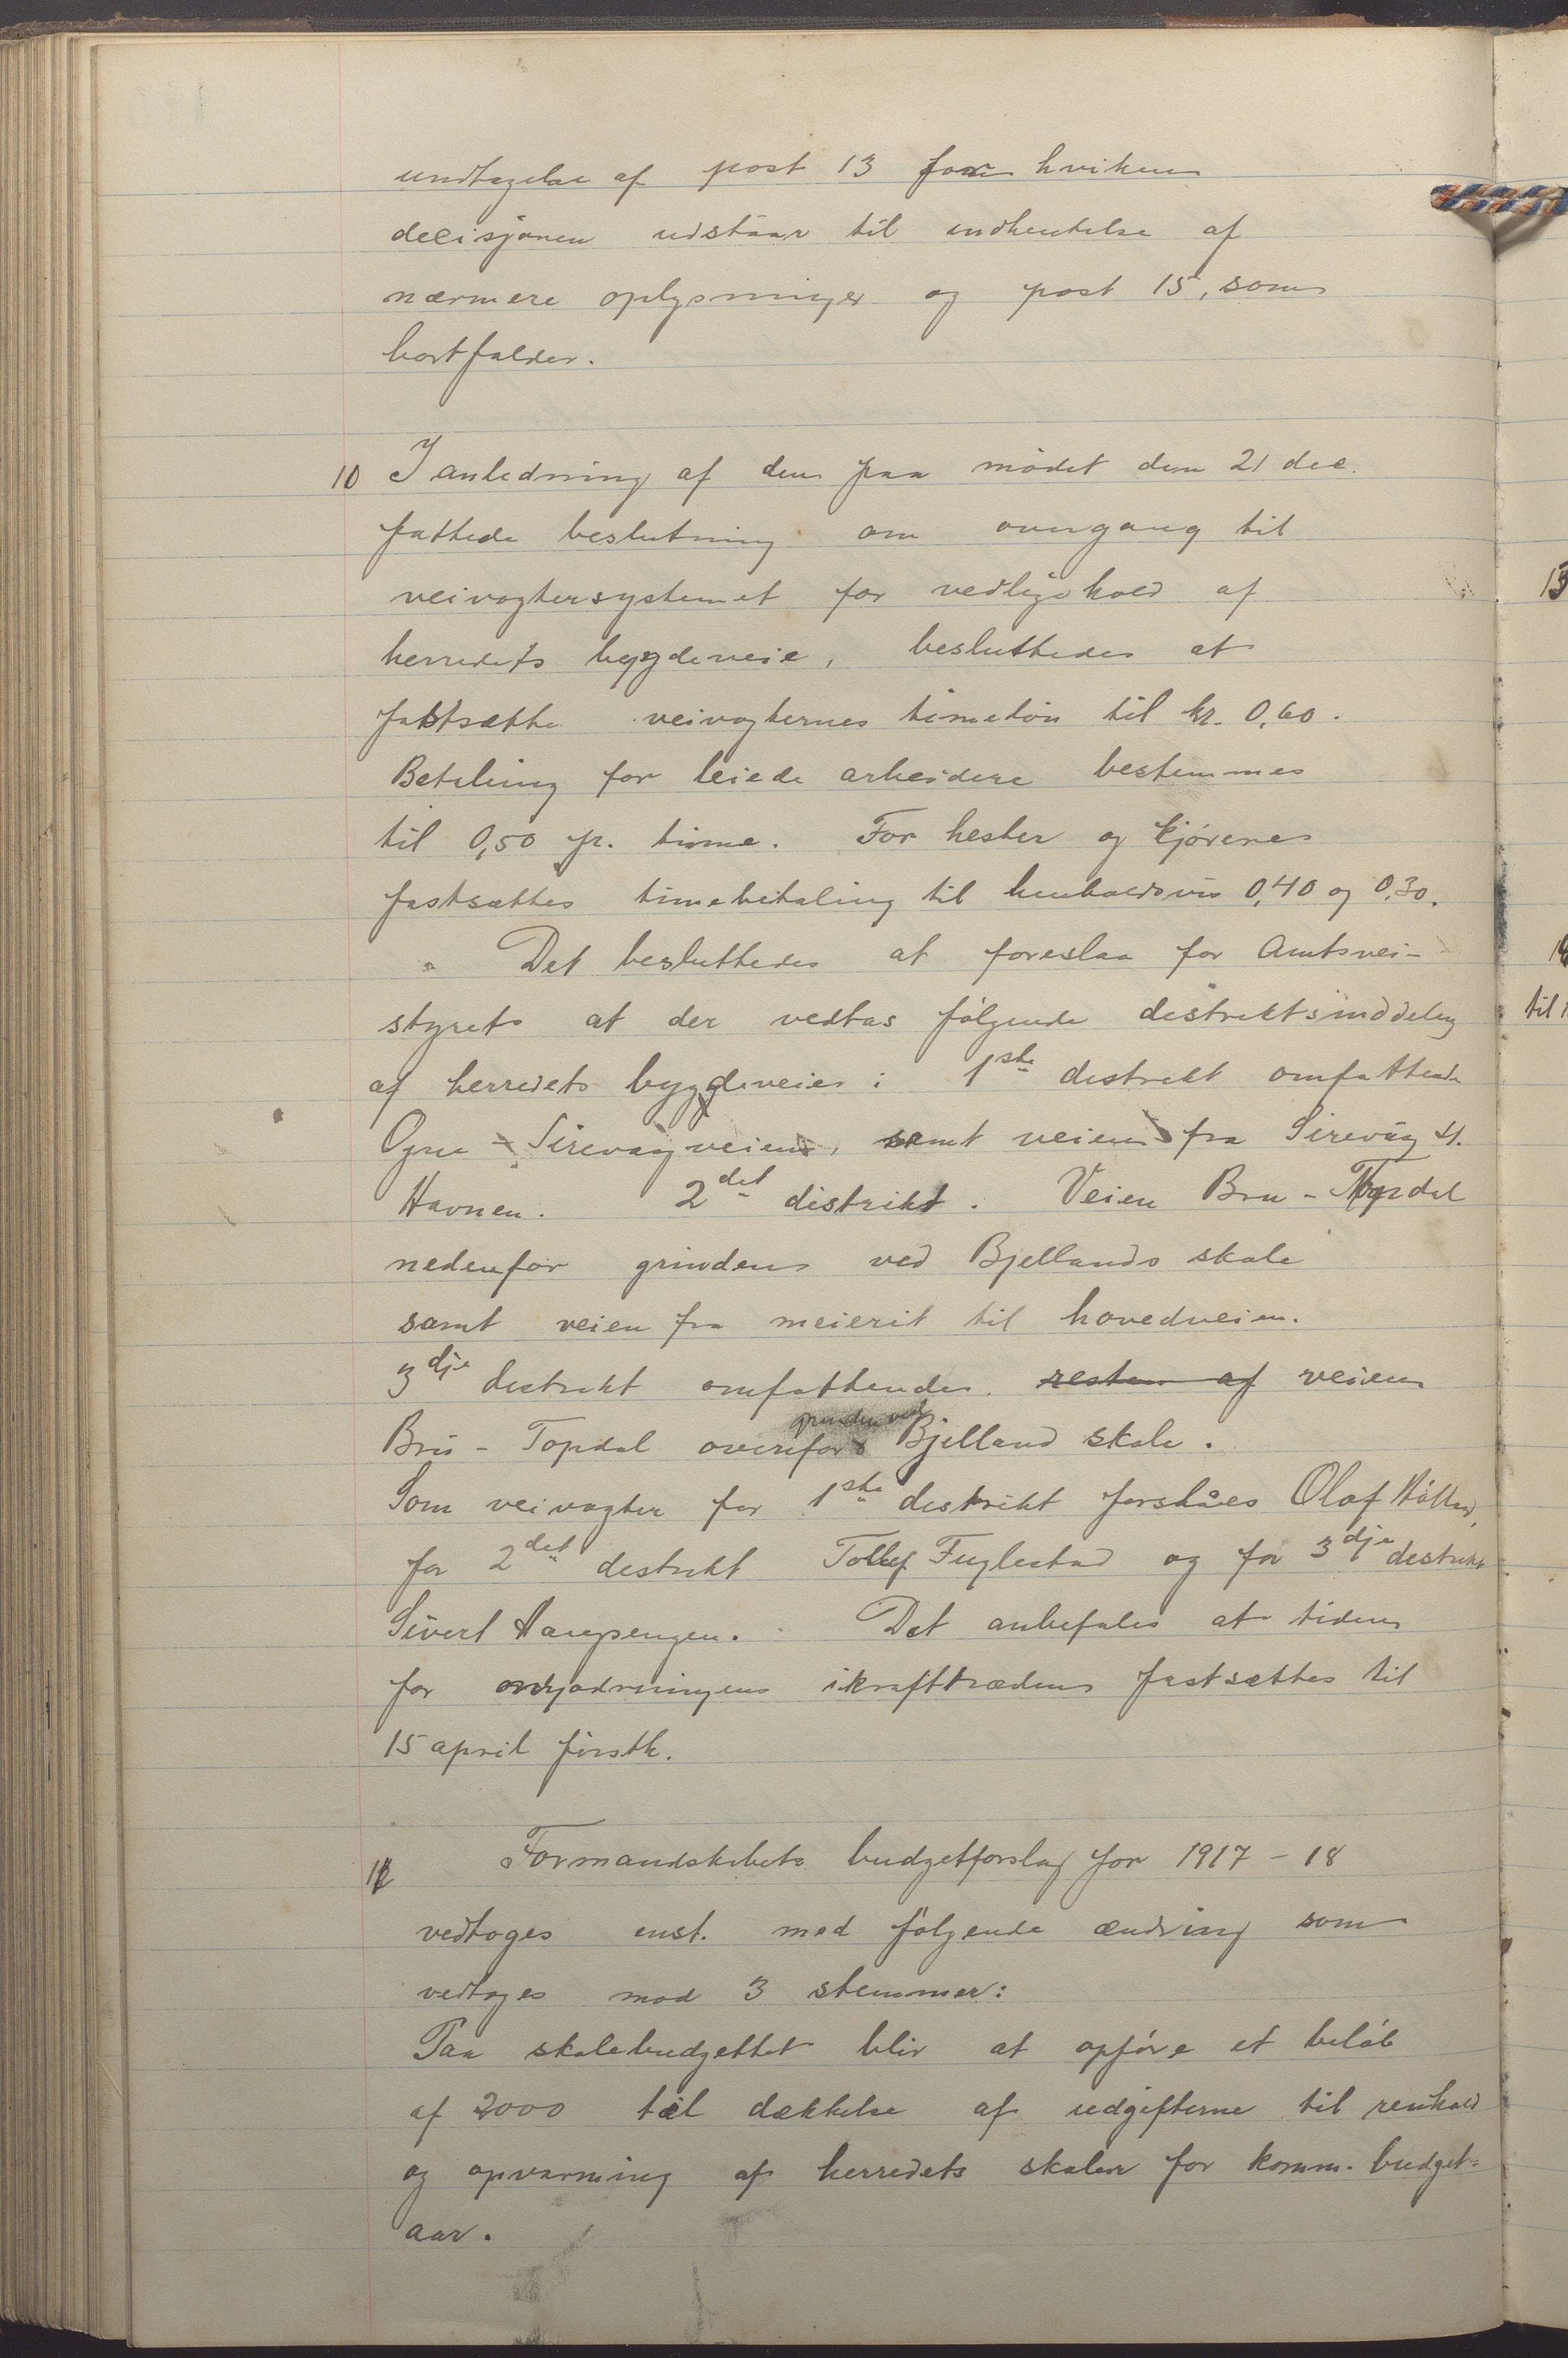 undtagelse af post 13 for hvilken
decisjonen udstaar til indhentelse af
nærmere oplysninger og post 15, som
bortfalder.
10 I anledning af den paa mödet den 21 dec.
fattede beslutning om overgang til
veivogtersystemet for vedligehold af
herredets bygdeveie, besluttedes at
fastsætte veivogternes timelön til kr. 0,60.
Betaling for leiede arbeidere bestemmes
til 0,50 pr. time. For hester og kjörere
fastsættes timebetaling til henholdsvis 0,40 og 0,30.
Det besluttedes at foreslaa for Amtsvei-
styret at der vedtas fölgende distriktsinddeling
af herredets bygdeveier: 1ste distrikt omfattende
Ogna - Sirevågveien, samt veien fra Sirevåg t.
Havnen. 2det distrikt. Veien Bru - Topdal
nedenfor grinden ved Bjellands skole
samt veien fra meierit til hovedveien.
3dje distrikt omfattende resten af veien
Bru - Topdal ovenfor grinden ved Bjelland skole.
Som veivogter for 1ste distrikt forslåes Olaf
for 2det distrikt Tollef Fuglestad og for 3dje distrikt
Sivert Det anbefales at tiden
for ordningens ikrafttræden fastsættes til
15 april förstk.
11 Formandskabets budgetforslag for 1917 - 18
vedtoges enst. med fölgende ændring som
vedtoges mod 3 stemmer:
Paa skolebudgettet blir at opföre et belöb
af 2000 til dækkelse af udgifterne til renhold
og opvarming af herredets skoler for komm. budget-
aar.
13
til